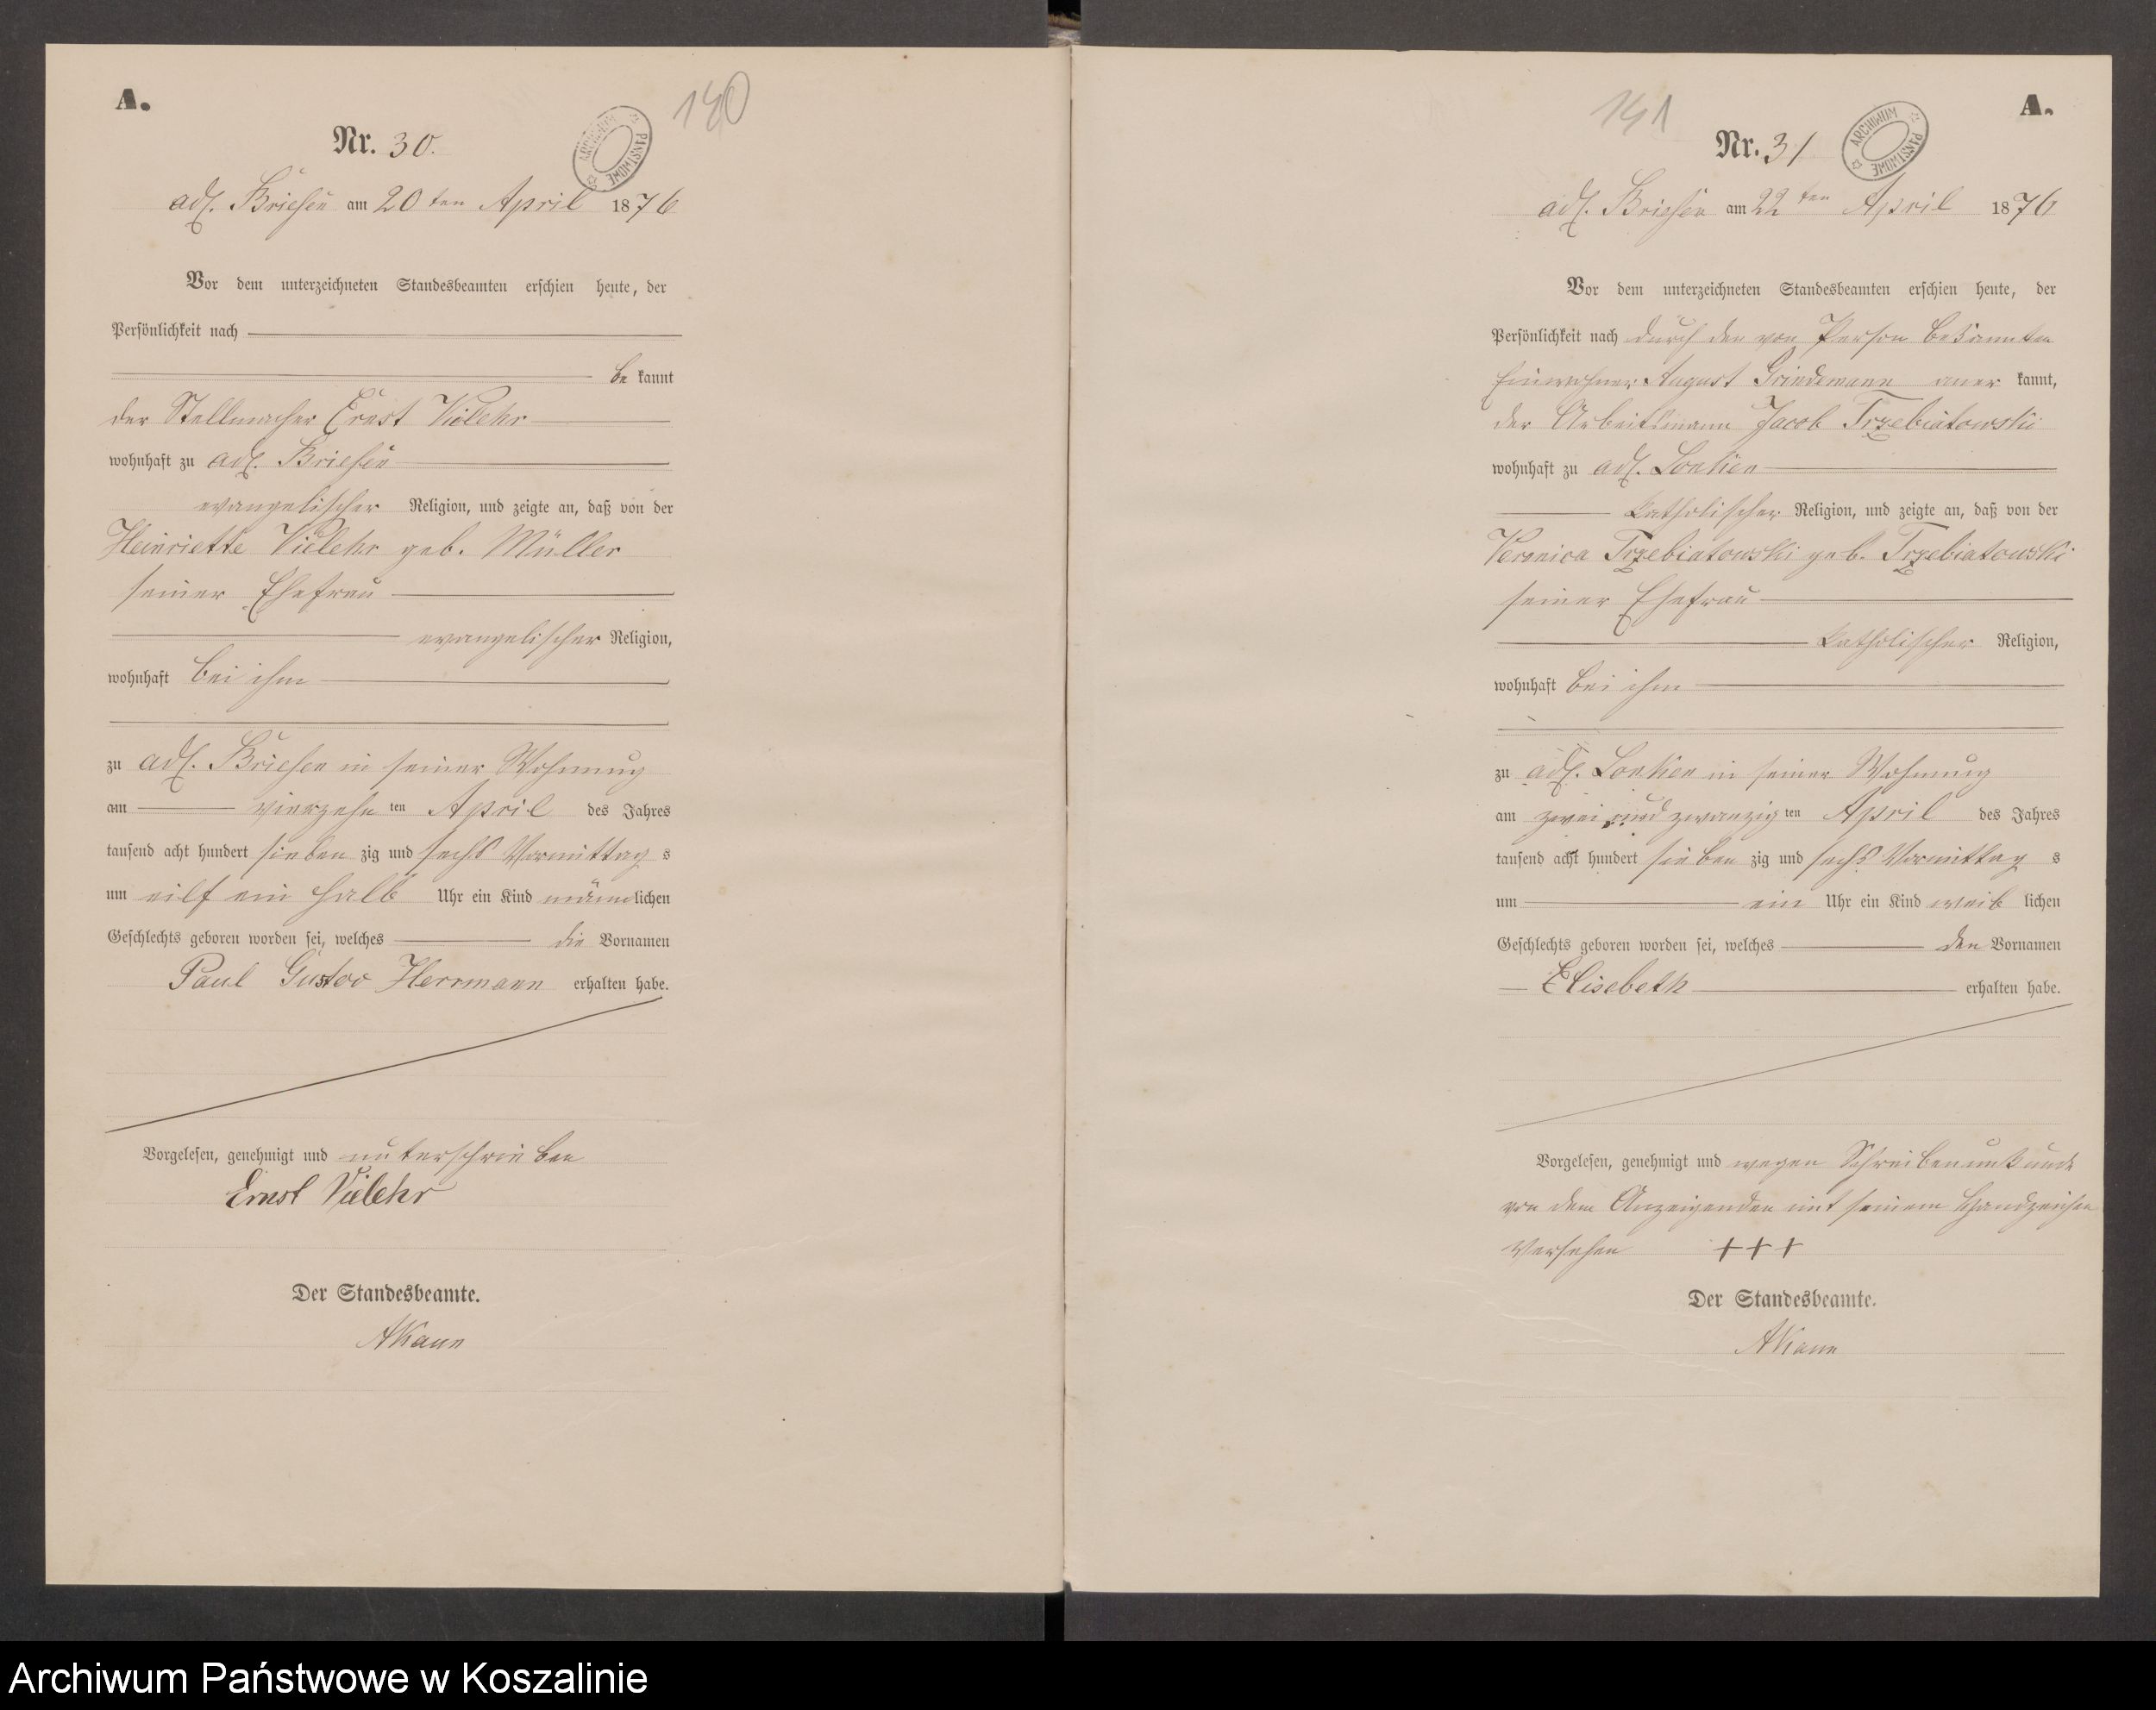 A.
140
Nr. 30.
ARCHIWUM PAŃSTWOWE
adl. Briesen am 20ten April 1876
Vor dem unterzeichneten Standesbeamten erschien heute, der
Persönlichkeit nach
be kannt
der Stellmacher Ernst Vielehr
wohnhaft zu adl. Briesen
evangelischer Religion, und zeigte an, daß von der
Henriette Vielehr geb. Müller
seiner Ehefrau
evangelischer Religion,
wohnhaft bei ihm
zu adl. Briesen in seiner Wohnung
am vierzehn ten April des Jahres
tausend acht hundert sieben zig und sechs Vormittag s
um eilf ein halb Uhr ein Kind männlichen
Geschlechts geboren worden sei, welches die Vornamen
Paul Gustav Herrmann erhalten habe.
Vorgelesen, genehmigt und unterschrieben
Ernst Vielehr
Der Standesbeamte.
141
A.
Nr. 31
ARCHIWUM PAŃSTWOWE
adl. Briesen am 22ten April 1876
Vor dem unterzeichneten Standesbeamten erschien heute, der
Persönlichkeit nach durch den von Person bekannten
Einwohner August Griedemann aner kannt,
der Arbeitsmann Jacob Trzebiatowski
wohnhaft zu adl. Lonken
katholischer Religion, und zeigte an, daß von der
Veronica Trzebiatowski geb. Trzebiatowski
seiner Ehefrau
katholischer Religion,
wohnhaft bei ihm
zu adl. Lonken in seiner Wohnung
am zwei und zwanzig ten April des Jahres
tausend acht hundert sieben zig und sechs Vormittag s
um ein Uhr ein Kind weib lichen
Geschlechts geboren worden sei, welches den Vornamen
Elisebeth erhalten habe.
Vorgelesen, genehmigt und wegen Schreibensunkunde
von dem Anzeigenden mit seinem Handzeichen
versehen +++
Der Standesbeamte.
Archiwum Państwowe w Koszalinie